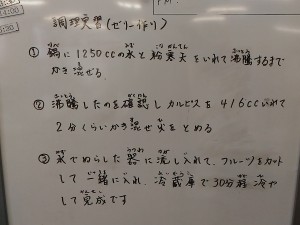 調理実習(ゼリー作り)
① 鍋に1250ccの水と粉寒天をいれて沸騰するまで
かき混ぜる。
② 沸騰したのを確認しカルピスを416cc入れて
2分くらいかき混ぜ火をとめる
③ 水でぬらした器に流し入れて、フルーツをカット
して一緒に入れ、冷蔵庫で30分程冷や
して完成です